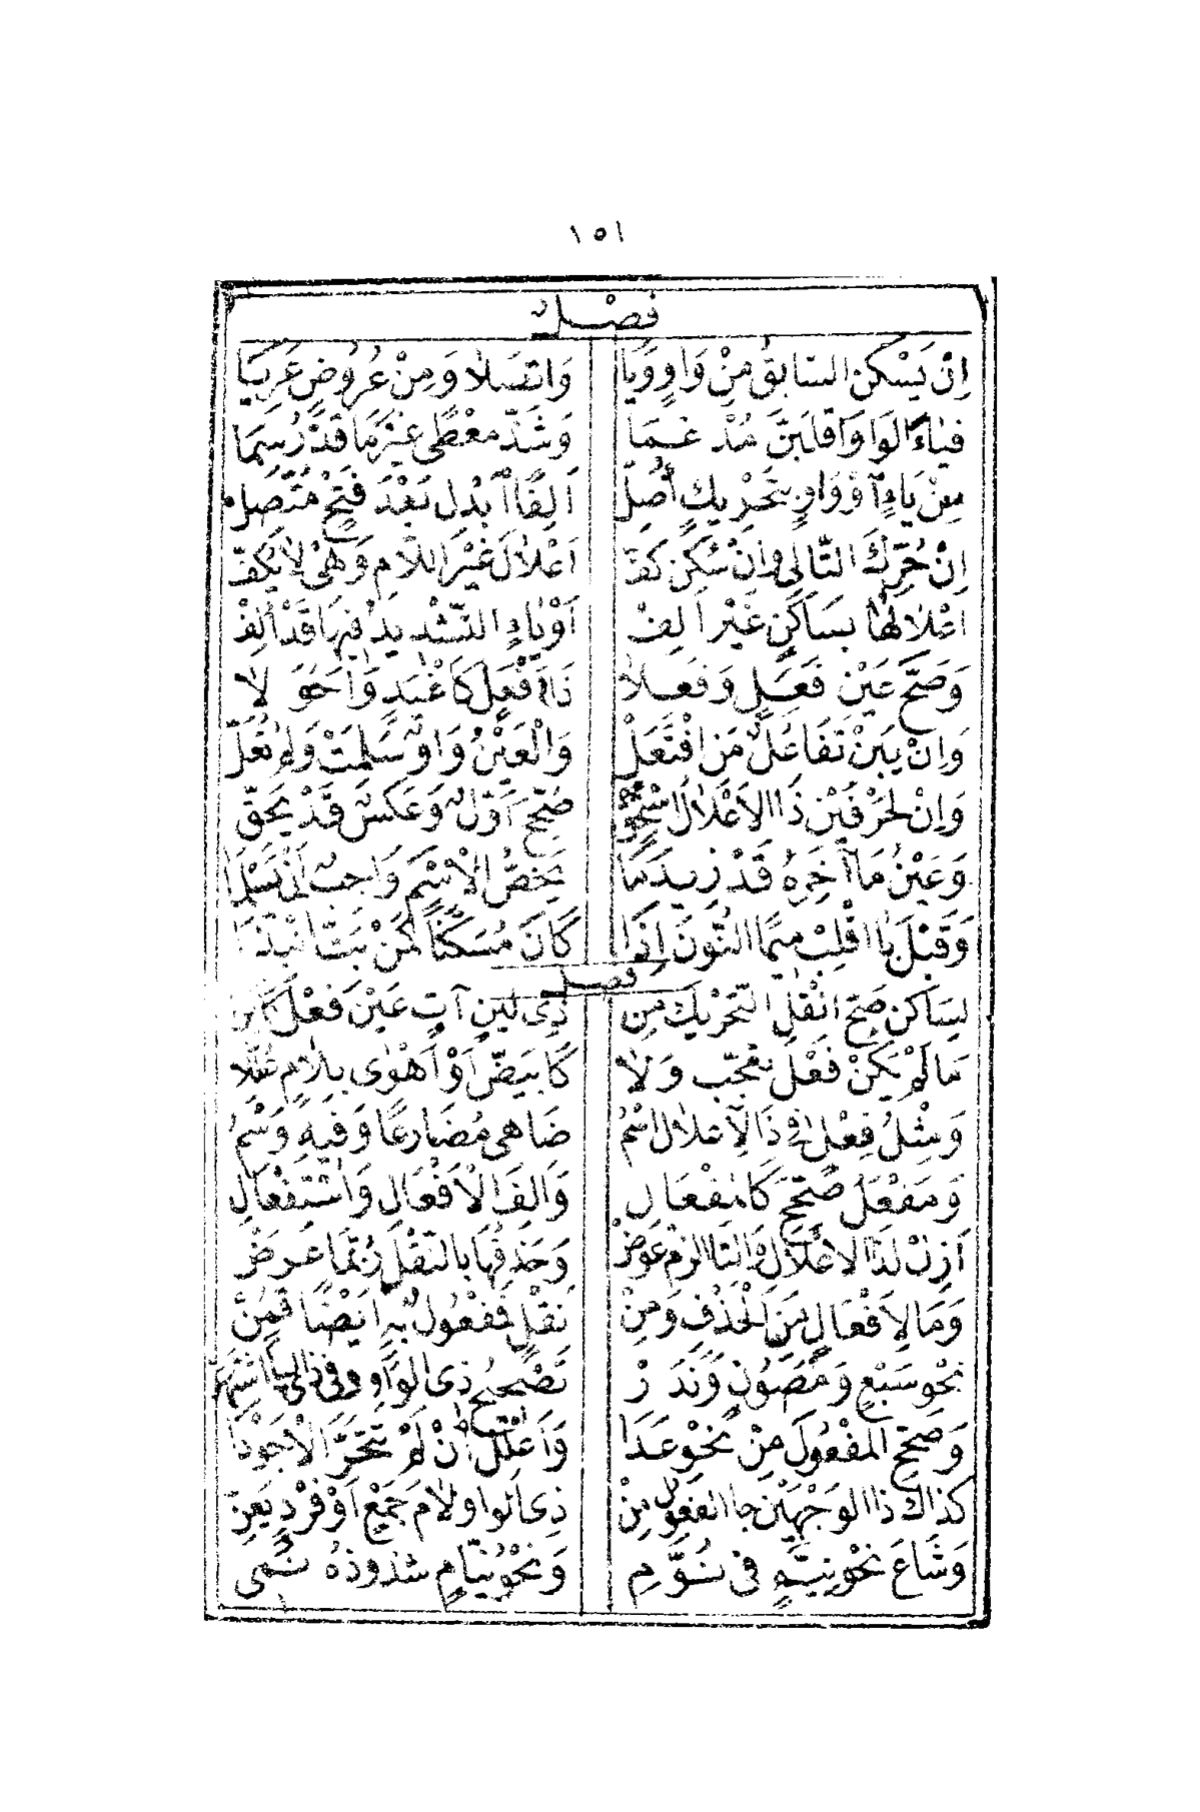 ١٥١
فصل
اِنْ يَسْكُنِ السَّابِقُ مِنْ وَاوٍ وَيَا وَاتَّصَلَا وَمِنْ عُرُوضٍ عَرِيَا
فَيَاءً الْوَاوَ اقْلِبَنَّ مُدْغِمَا وَشَذَّ مُعْطًى غَيْرَ مَا قَدْ رُسِمَا
مِنْ يَاءٍ اَوْ وَاوٍ بِتَحْرِيكٍ اُصِلْ اَلِفًا ابْدِلْ بَعْدَ فَتْحٍ مُتَّصِلْ
اِنْ حُرِّكَ التَّالِي وَاِنْ سُكِّنَ كَفّْ اِعْلَالَ غَيْرِ اللَّامِ وَهْيَ لَا يُكَفّْ
اِعْلَالُهَا بِسَاكِنٍ غَيْرِ اَلِفْ اَوْ يَاءٍ التَّشْدِيدُ فِيهَا قَدْ اُلِفْ
وَصَحَّ عَيْنُ فَعَلٍ وَفَعِلَا ذَا اَفْعَلٍ كَاَغْيَدٍ وَاَحْوَلَا
وَاِنْ يَبِنْ تَفَاعُلٌ مِنِ افْتَعَلْ وَالْعَيْنُ وَاوٌ سَلِمَتْ وَلَمْ تُعَلّْ
وَاِنْ لِحَرْفَيْنِ ذَا الْاِعْلَالُ اسْتُحِقْ صُحِّحَ اَوَّلٌ وَعَكْسٌ قَدْ يَحِقّْ
وَعَيْنُ مَا آخِرَهُ قَدْ زِيدَ مَا يَخُصُّ الْاِسْمَ وَاجِبٌ اَنْ يَسْلَمَا
وَقَبْلَ بَا اقْلِبْ مِيمًا النُّونَ اِذَا كَانَ مُسَكَّنًا كَمَنْ بَتَّ انْبِذَا
فصل
لِسَاكِنٍ صَحَّ انْقُلِ التَّحْرِيكَ مِنْ ذِي لِينٍ آتٍ عَيْنَ فِعْلٍ كَاَبِنْ
مَا لَمْ يَكُنْ فِعْلَ تَعَجُّبٍ وَلَا كَابْيَضَّ اَوْ اَهْوَى بِلَامٍ عُلِّلَا
وَمِثْلُ فِعْلٍ فِي ذَا الْاِعْلَالِ اسْمُ ضَاهَى مُضَارِعًا وَفِيهِ وَسْمُ
وَمِفْعَلٌ صُحِّحَ كَالْمِفْعَالِ وَاَلِفَ الْاِفْعَالِ وَاسْتِفْعَالِ
اَزِلْ لِذَا الْاِعْلَالِ وَالتَّا الْزَمْ عِوَضْ وَحَذْفُهَا بِالنَّقْلِ رُبَّمَا عَرَضْ
وَمَا لِاِفْعَالٍ مِنَ الْحَذْفِ وَمِنْ نَقْلٍ فَمَفْعُولٌ بِهِ اَيْضًا قَمِنْ
نَحْوُ مَبِيعٍ وَمَصُونٍ وَنَدَرْ تَصْحِيحُ ذِي الْوَاوِ وَفِي ذِي الْيَا اشْتَهَرْ
وَصَحِّحِ الْمَفْعُولَ مِنْ نَحْوِ عَدَا وَاَعْلِلْ اِنْ لَمْ تَتَحَرَّ الْاَجْوَدَا
كَذَاكَ ذَا الْوَجْهَيْنِ جَا الْفُعُولُ مِنْ ذِي الْوَاوِ لَامَ جَمْعٍ اَوْ فَرْدٍ يَعِنّْ
وَشَاعَ نَحْوُ نُيَّمٍ فِي نُوَّمِ وَنَحْوُ نُيَّامٍ شُذُوذُهُ نُمِي